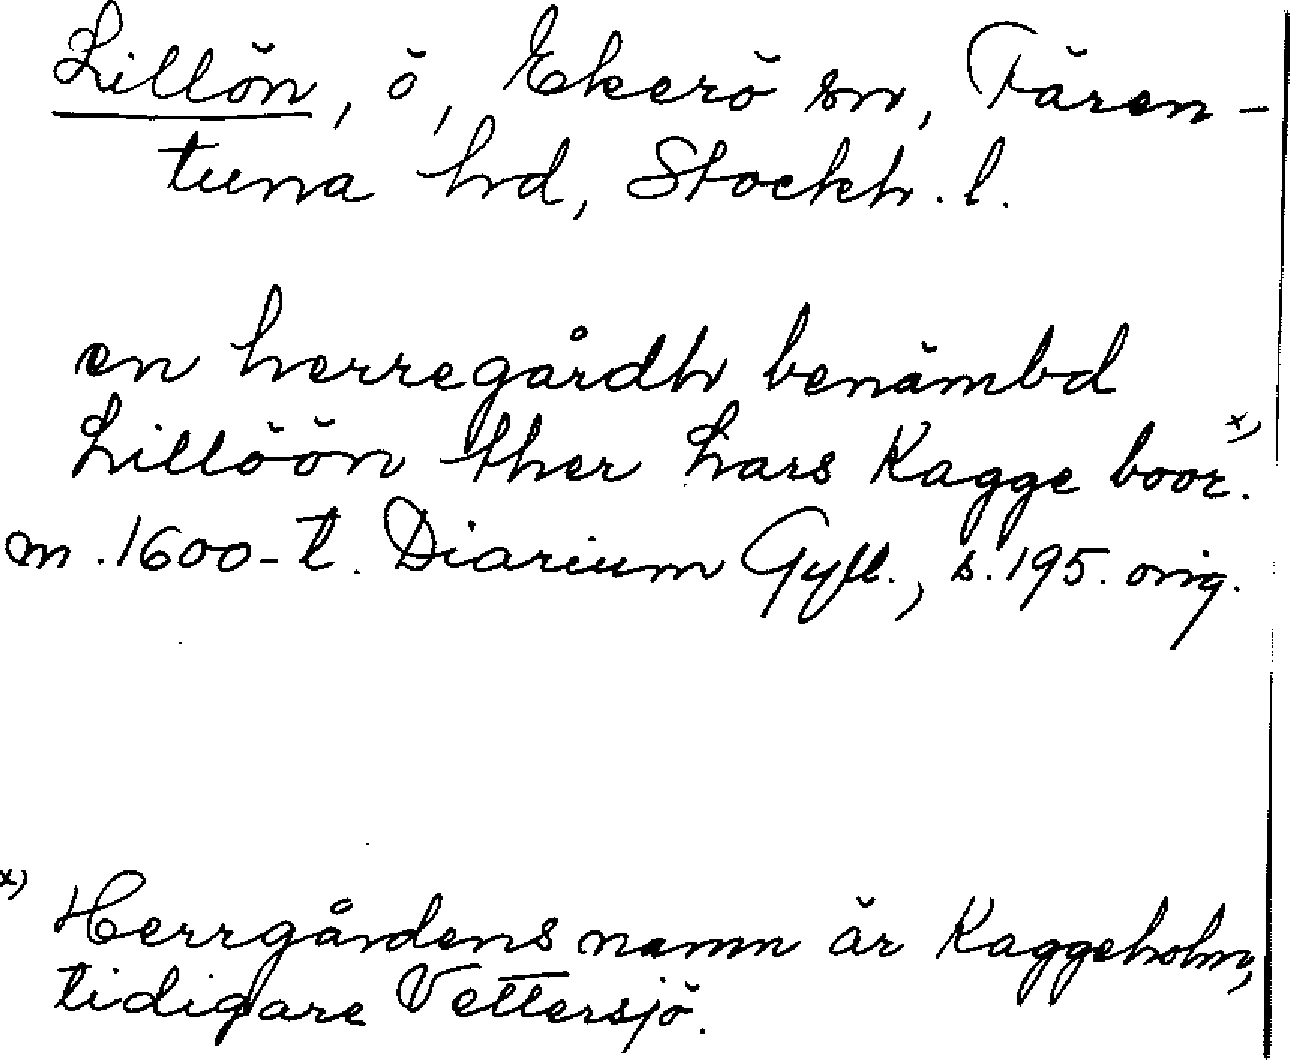 Lillön, ö, Ekerö sn, Fären-
tuna hd, Stockh. l.
en herregårdh benämbd
Lillöön ther Lars Kagge boor. x)
m. 1600-t. Diarium Gyll., s. 195. orig.
x) Herrgårdens namn är Kaggeholm,
tidigare Vettersjö.